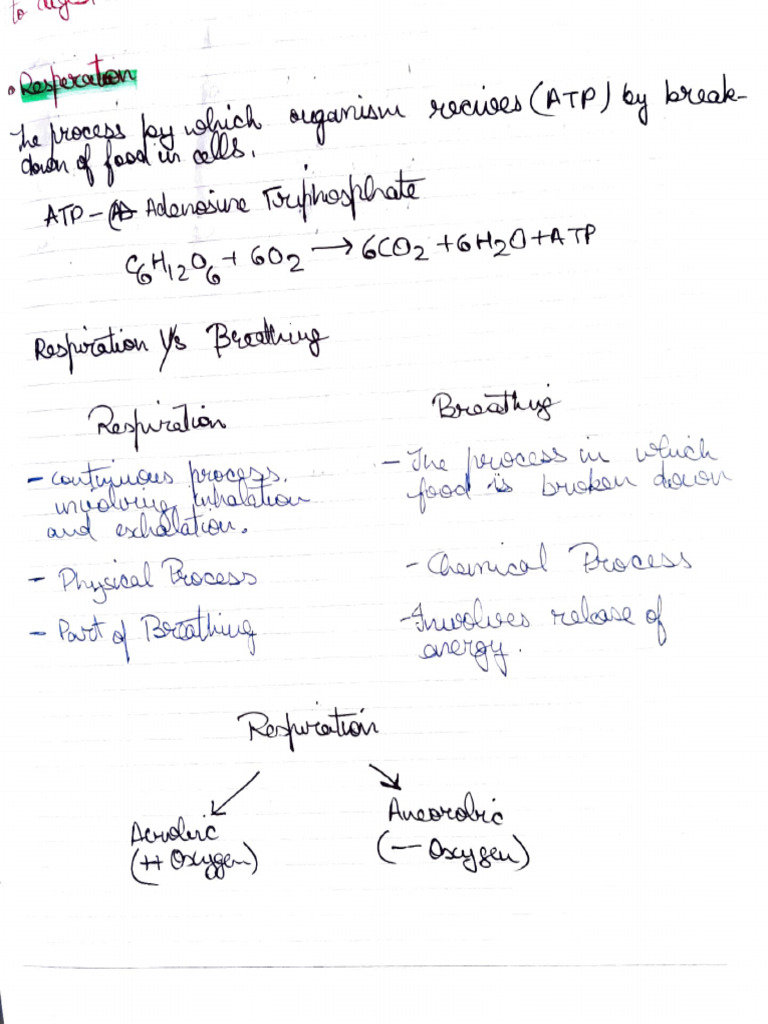 to
• Resperation
The process by which organism recives (ATP) by break-
down of food in cells.
ATP - Adenosine Triphosphate
C6H12O6 + 6O2 → 6CO2 + 6H2O + ATP
Respiration V/s Breathing
Respiration
Breathing
- Continuous process.
involving inhalation
and exhalation.
- The process in which
food is broken down
- Physical Process
- Chemical Process
- Part of Breathing
- Involves release of
energy.
Respiration
Aerobic
(+ Oxygen)
Aneorobic
(- Oxygen)